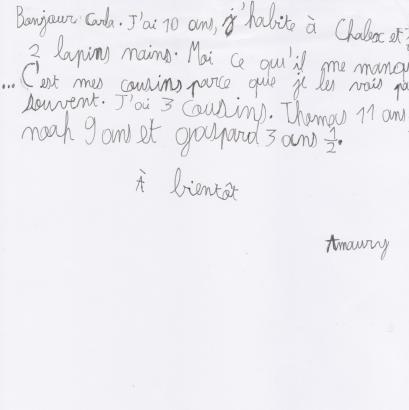 Bonjour Carla. J'ai 10 ans, j'habite à Chalex et
2 lapins nains. Moi ce qu'il me manqu
... C'est mes cousins parce que je les vois pa
souvent. J'ai 3 cousins. Thomas 11 ans
noah 9 ans et gaspard 3 ans 1/2.
À bientôt
Amaury